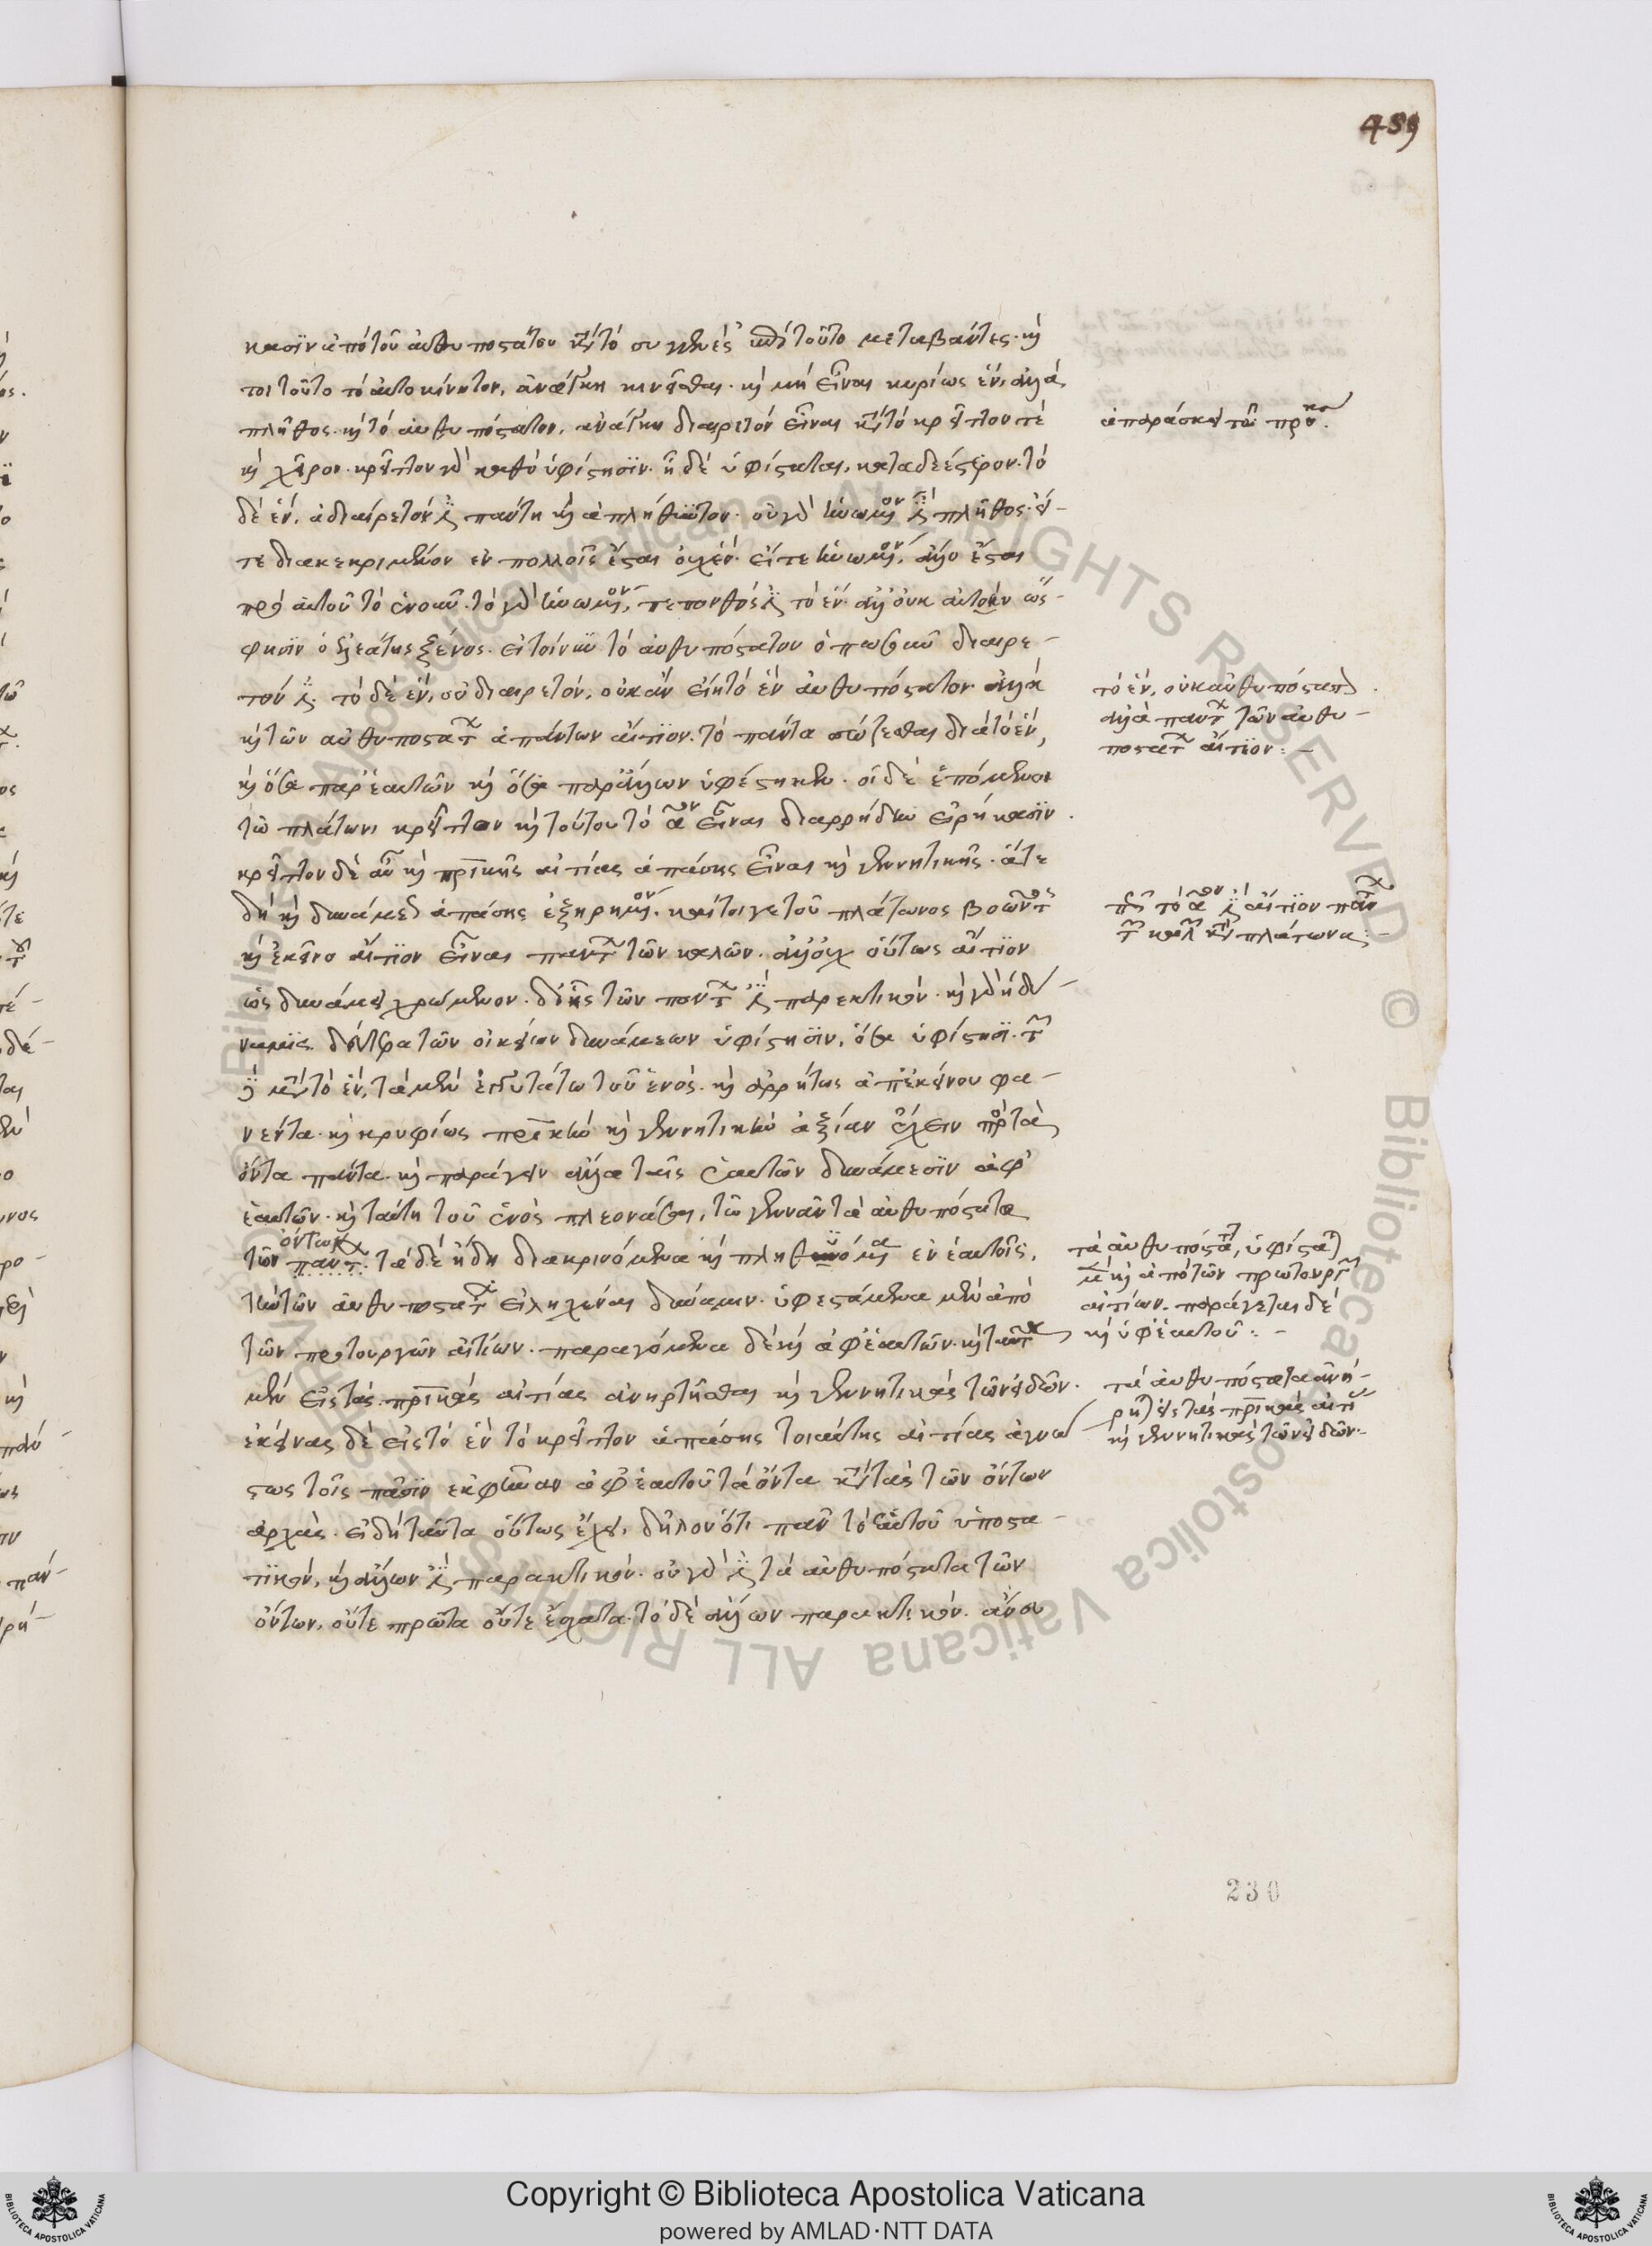 489
κασιν ἀπὸ τοῦ αὐθυποστάτου κατὰ τὸ συγγενὲς ἐπὶ τοῦτο μεταβάντες. καί
τοι τοῦτο τὸ αὐτοκίνητον, ἀνάγκη κινεῖσθαι. καὶ μὴ εἶναι κυρίως ἕν, ἀλλὰ
πλῆθος. καὶ τὸ αὐθυπόστατον, ἀνάγκη διαιρετὸν εἶναι κατὰ τὸ κρεῖττον τὲ
καὶ χεῖρον. κρεῖττον γὰρ καθὸ ὑφίστησιν. ἧ δὲ ὑφίσταται, καταδεέστερον. τὸ
δὲ ἕν, ἀδιαίρετόν ἐστι πάντη καὶ ἀπλήθυντον. οὐ γὰρ ἡνωμένον ἐστὶ πλῆθος. εἴ-
τε διακεκριμένον ἐν πολλοῖς ἔσται οὐχ ἕν. εἴτε ἡνωμένον, ἄλλο ἔσται
πρὸ αὐτοῦ τὸ ἑνοῦν. τὸ γὰρ ἡνωμένον, πεπονθός ἐστι τὸ ἕν. ἀλλ' οὐκ αὐτοὲν ὥς
φησιν ὁ ἐλεάτης ξένος. εἰ τοίνυν τὸ αὐθυπόστατον ὁπωσοῦν διαιρε-
τόν ἐστι. τὸ δὲ ἕν, οὐ διαιρετόν, οὐκ ἂν εἴη τὸ ἓν αὐθυπόστατον. ἀλλὰ
καὶ τῶν αὐθυποστάτων ἁπάντων αἴτιον. τὸ πάντα σώζεσθαι διὰ τὸ ἕν,
καὶ ὅσα παρ' ἑαυτῶν καὶ ὅσα παρ' ἄλλων ὑφέστηκεν. οἱ δὲ ἑπόμενοι
τῶ πλάτωνι κρεῖττον καὶ τούτου τὸ πρῶτον εἶναι διαρρήδην εἰρήκασιν.
κρεῖττον δὲ αὖ καὶ πατρικῆς αἰτίας ἁπάσης εἶναι καὶ γεννητικῆς. ἅτε
δὴ καὶ δυνάμεως ἁπάσης ἐξηρημένον. καίτοι γε τοῦ πλάτωνος βοῶντος
καὶ ἐκεῖνο αἴτιον εἶναι πάντων τῶν καλῶν. ἀλλ' οὐχ οὕτως αἴτιον
ὡς δυνάμει χρώμενον. δι' ἧς τῶν πάντων ἐστὶ παρεκτικόν. καὶ γὰρ ἡ δύ-
ναμις δεύτερα τῶν οἰκείων δυνάμεων ὑφίστησιν, ὅσα ὑφίστησι. τῶν
δὲ μετὰ τὸ ἕν, τὰ μὲν ἐγγυτάτω τοῦ ἑνὸς. καὶ ἀρρήτως ἀπ' ἐκείνου φα-
νέντα. καὶ κρυφίως πατρικὴν καὶ γεννητικὴν ἀξίαν ἔχειν πρὸς τὰ
ὄντα πάντα. καὶ παράγειν ἄλλα ταῖς ἑαυτῶν δυνάμεσιν ἀφ'
ἑαυτῶν. καὶ ταύτη τοῦ ἑνὸς πλεονάζειν, τῶ γεννᾶν τὰ αὐθυπόστατα
ὄντων
τῶν πάντων. τὰ δὲ ἤδη διακρινόμενα καὶ πληθυνόμενα ἐν ἑαυτοῖς,
τὴν τῶν αὐθυποστάτων εἰληχέναι δύναμιν. ὑφιστάμενα μὲν ἀπὸ
τῶν πρωτουργῶν αἰτίων. παραγόμενα δὲ καὶ ἀφ' ἑαυτῶν. καὶ ταῦτα
μὲν εἰς τὰς πατρικὰς αἰτίας ἀνηρτῆσθαι καὶ γεννητικὰς τῶν εἰδῶν.
ἐκείνας δὲ εἰς τὸ ἓν τὸ κρεῖττον ἁπάσης τοιαύτης αἰτίας ἀγνώ
στως τοῖς πᾶσιν ἐκφῆναν ἀφ' ἑαυτοῦ τὰ ὄντα κατὰ τὰς τῶν ὄντων
ἀρχὰς. εἰ δὴ ταῦτα οὕτως ἔχει, δῆλον ὅτι πᾶν τὸ ἑαυτοῦ ὑποστα-
τικόν, καὶ ἄλλων ἐστὶ παρακτικόν. οὐ γάρ ἐστι τὰ αὐθυπόστατα τῶν
ὄντων, οὔτε πρῶτα οὔτε ἔσχατα. τὸ δὲ ἄλλων παρακτικόν. ἄνευ
τὸ ἕν, οὐκ αὐθυπόστατον.
ἀλλὰ πάντων τῶν αὐθυ-
ποστάτων αἴτιον:-
πῶς τὸ πρῶτον ἐστὶ αἴτιον πάντων
τῶν καλῶν κατὰ πλάτωνα:-
τὰ αὐθυπόστατα, ὑφίσταται
μὲν καὶ ἀπὸ τῶν πρωτουργῶν
αἰτίων. παράγεται δὲ
καὶ ὑφ' ἑαυτοῦ:-
τὰ αὐθυπόστατα ἀνή-
ρηται εἰς τὰς πατρικὰς αἰτίας
καὶ γεννητικὰς τῶν εἰδῶν.-
230
Copyright © Biblioteca Apostolica Vaticana
powered by AMLAD·NTT DATA